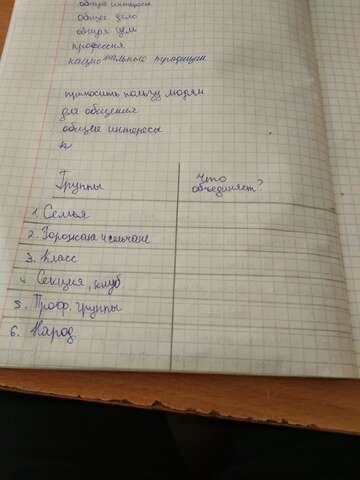 общие интересы
общее дело
общая цель
профессия
национального традиции
приносить пользу людям
для общения
общие интересы
н
Группы
Что объединяет?
1. Семья
2. Горожане и сельчане
3. Класс
4. Секция, клуб
5. Проф. группы
6. Народ